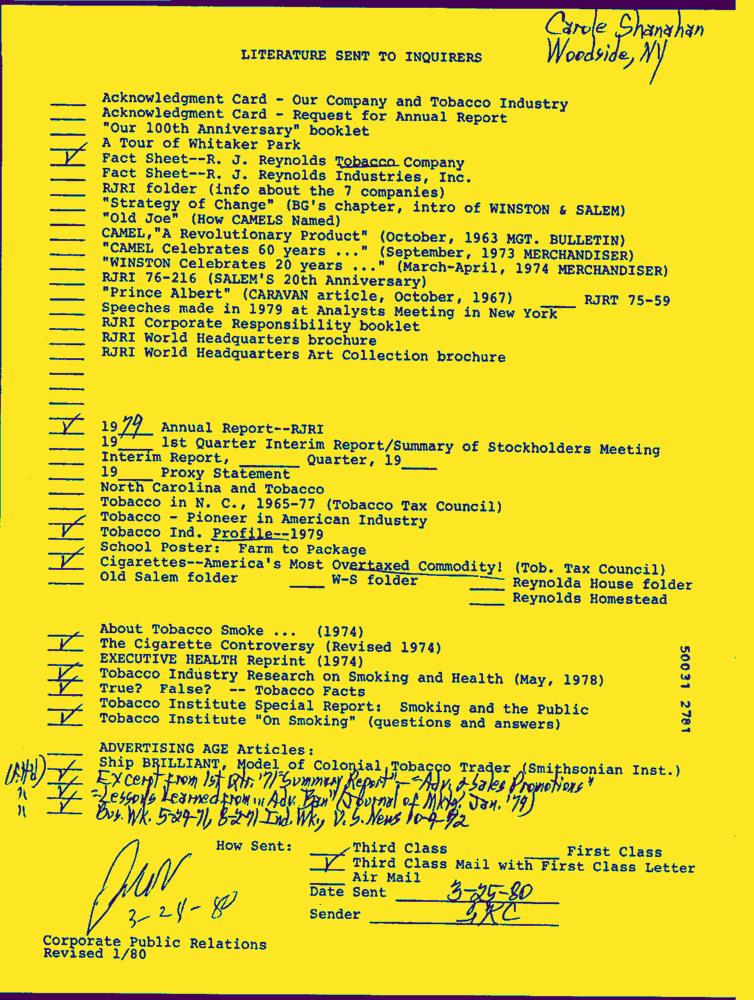 Carole Shanahan
Woodside, NY
LITERATURE SENT TO INQUIRERS
___ Acknowledgment Card - Our Company and Tobacco Industry
___ Acknowledgment Card - Request for Annual Report
___ "Our 100th Anniversary" booklet
___ A Tour of Whitaker Park
✓ Fact Sheet--R. J. Reynolds Tobacco Company
___ Fact Sheet--R. J. Reynolds Industries, Inc.
___ RJRI folder (info about the 7 companies)
___ "Strategy of Change" (BG's chapter, intro of WINSTON & SALEM)
___ "Old Joe" (How CAMELS Named)
___ CAMEL,"A Revolutionary Product" (October, 1963 MGT. BULLETIN)
___ "CAMEL Celebrates 60 years ..." (September, 1973 MERCHANDISER)
___ "WINSTON Celebrates 20 years ..." (March-April, 1974 MERCHANDISER)
___ RJRI 76-216 (SALEM'S 20th Anniversary)
___ "Prince Albert" (CARAVAN article, October, 1967) ___ RJRT 75-59
___ Speeches made in 1979 at Analysts Meeting in New York
___ RJRI Corporate Responsibility booklet
___ RJRI World Headquarters brochure
___ RJRI World Headquarters Art Collection brochure
✓ 1979 Annual Report--RJRI
___ 19___ 1st Quarter Interim Report/Summary of Stockholders Meeting
___ Interim Report, ______ Quarter, 19___
___ 19___ Proxy Statement
___ North Carolina and Tobacco
___ Tobacco in N. C., 1965-77 (Tobacco Tax Council)
___ Tobacco - Pioneer in American Industry
✓ Tobacco Ind. Profile--1979
___ School Poster: Farm to Package
✓ Cigarettes--America's Most Overtaxed Commodity! (Tob. Tax Council)
___ Old Salem folder ___ W-S folder ___ Reynolda House folder
___ Reynolds Homestead
___ About Tobacco Smoke ... (1974)
✓ The Cigarette Controversy (Revised 1974)
___ EXECUTIVE HEALTH Reprint (1974)
✓ Tobacco Industry Research on Smoking and Health (May, 1978)
✓ True? False? -- Tobacco Facts
___ Tobacco Institute Special Report: Smoking and the Public
✓ Tobacco Institute "On Smoking" (questions and answers)
50031 2781
ADVERTISING AGE Articles:
___ Ship BRILLIANT, Model of Colonial Tobacco Trader (Smithsonian Inst.)
✓ Excerpt from 1st Qtr. '71 "Summary Report" - "Adv. & Sales Promotions"
" ✓ "Lessons Learned from ... Adv. Ban" (Journal of Mktg, Jan. '79)
" ✓ Bus. Wk. 5-29-71, Ind. Wk, U.S. News
How Sent: ___ Third Class ___ First Class
✓ Third Class Mail with First Class Letter
___ Air Mail
3-24-80
Date Sent 3-25-80
Sender
Corporate Public Relations
Revised 1/80